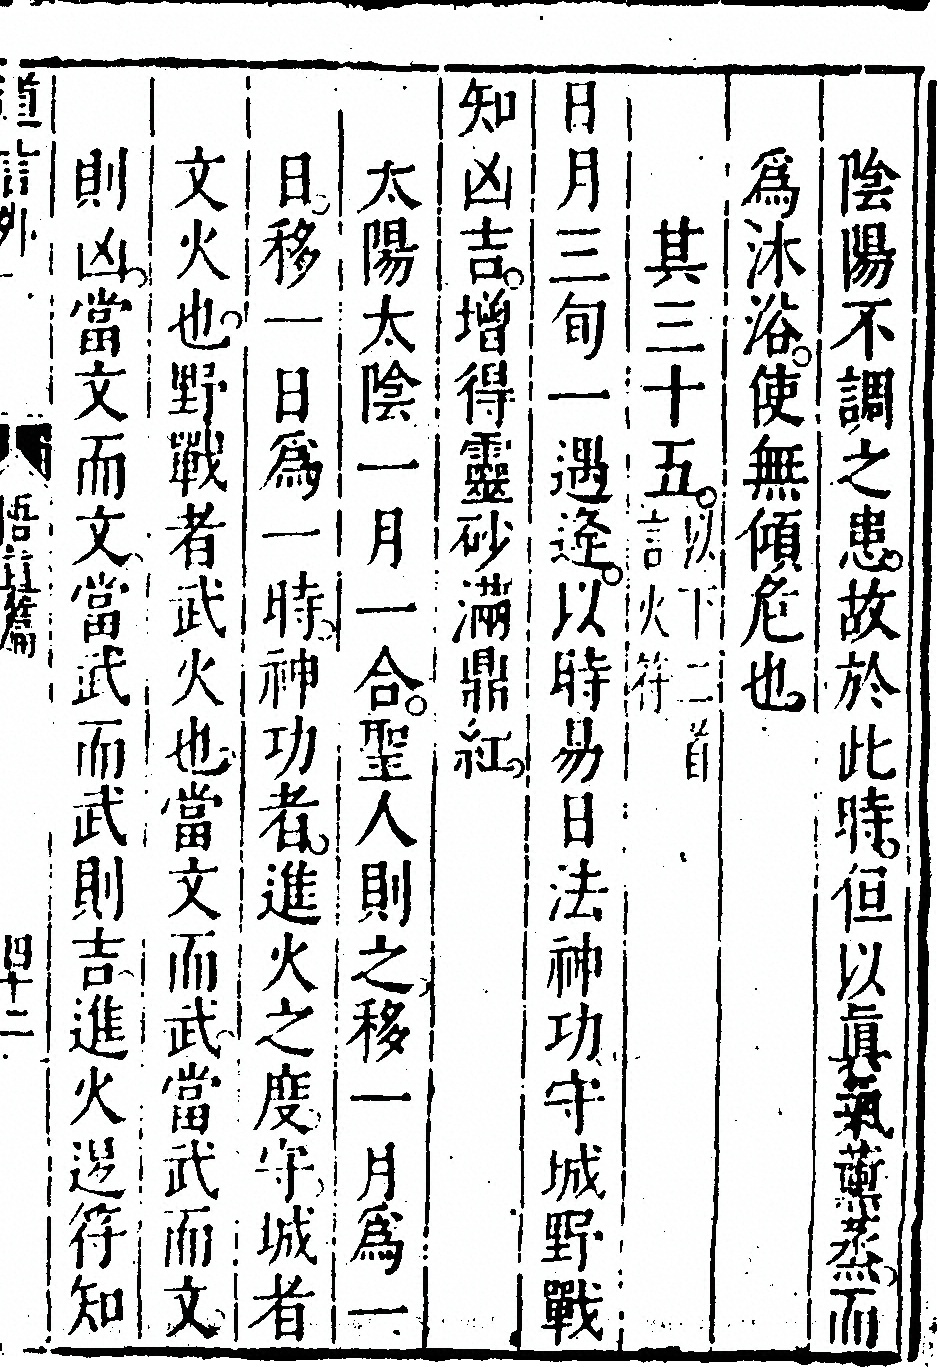 陰陽不調之患。故於此時。但以眞氣薰蒸。而
爲沐浴。使無傾危也。
其三十五。以下二首言火符
日月三旬一遇逢。以時易日法神功守城野戰
知凶吉。增得靈砂滿鼎紅。
太陽太陰一月一合。聖人則之。移一月爲一
日。移一日爲一時。神功者。進火之度。守城者
文火也。野戰者武火也。當文而武。當武而文。
則凶。當文而文。當武而武則吉。進火退符知
道言外
悟眞篇
四十二